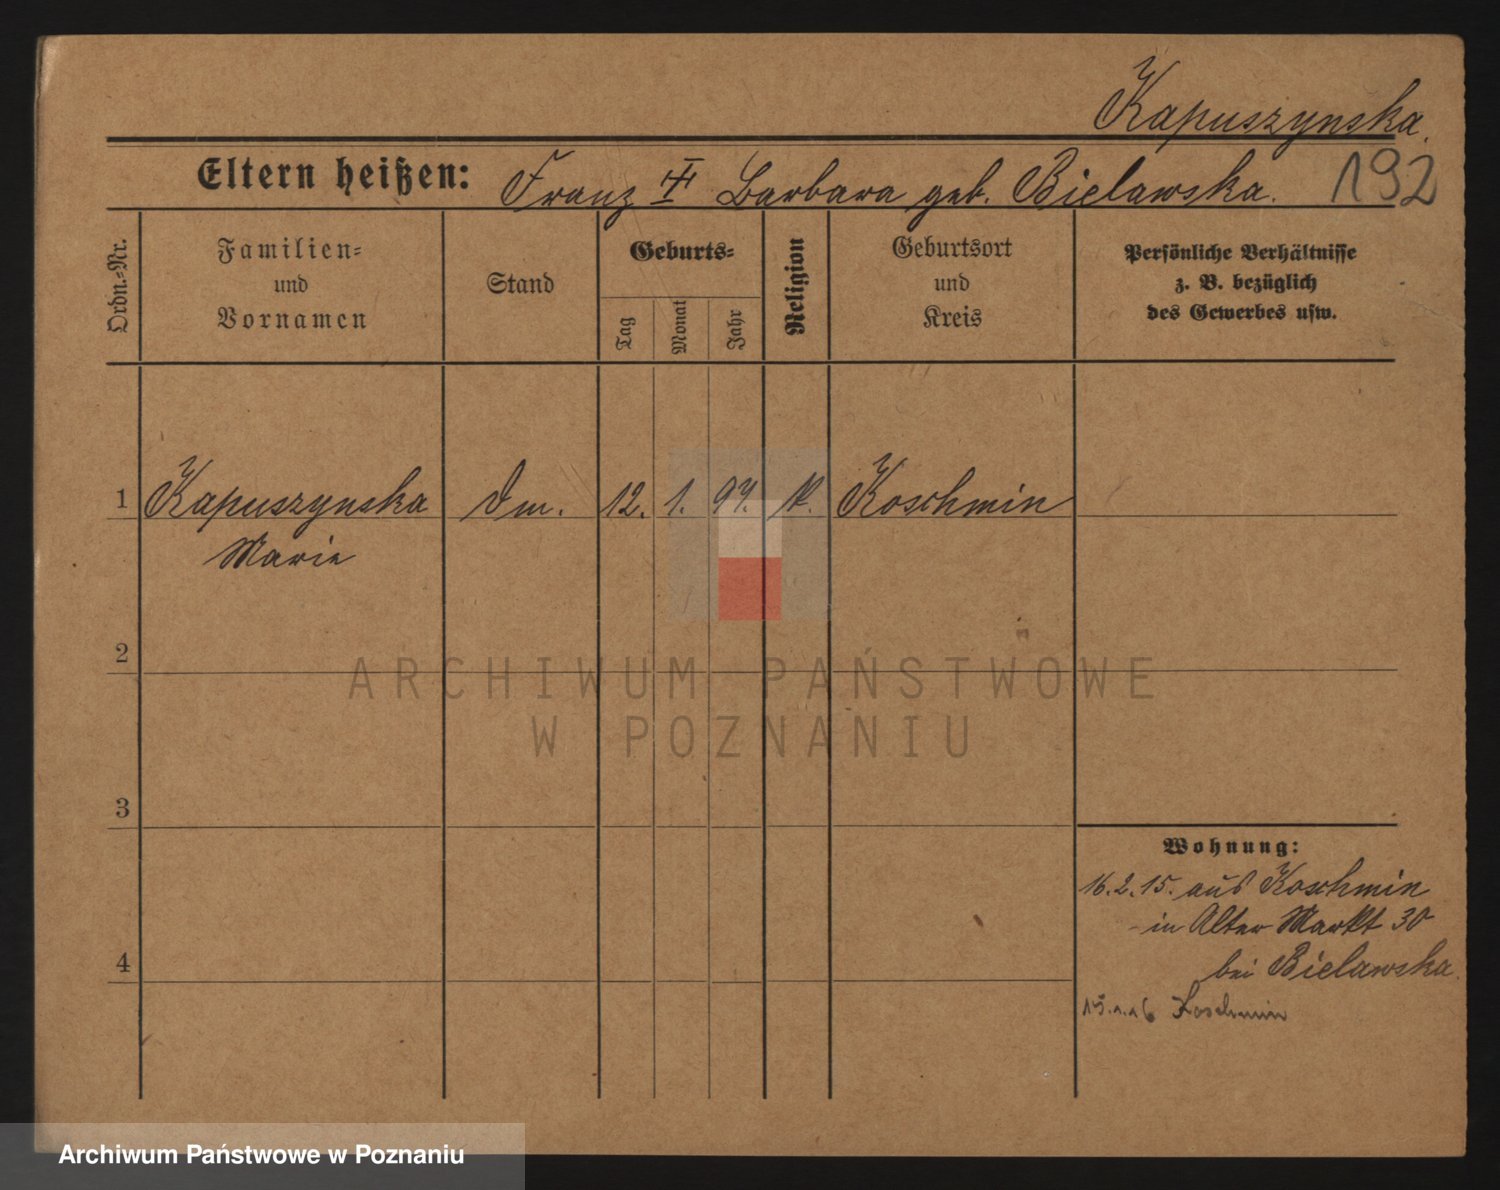 Kapuszynska.
Eltern heißen: Franz Barbara geb. Bielawska. 192
Ordn.-Nr.
Familien- und Vornamen
Stand
Geburts-
Tag
Monat
Jahr
Religion
Geburtsort und Kreis
Persönliche Verhältnisse
z. B. bezüglich
des Gewerbes usw.
1 Kapuszynska Dm. 12. 1. 97. k. Koschmin
Marie
2
3
4
Wohnung:
16.2.15. aus Koschmin
in Alter Markt 30
bei Bielawska.
15.1.16 Koschmin
ARCHIWUM PAŃSTWOWE
W POZNANIU
Archiwum Państwowe w Poznaniu